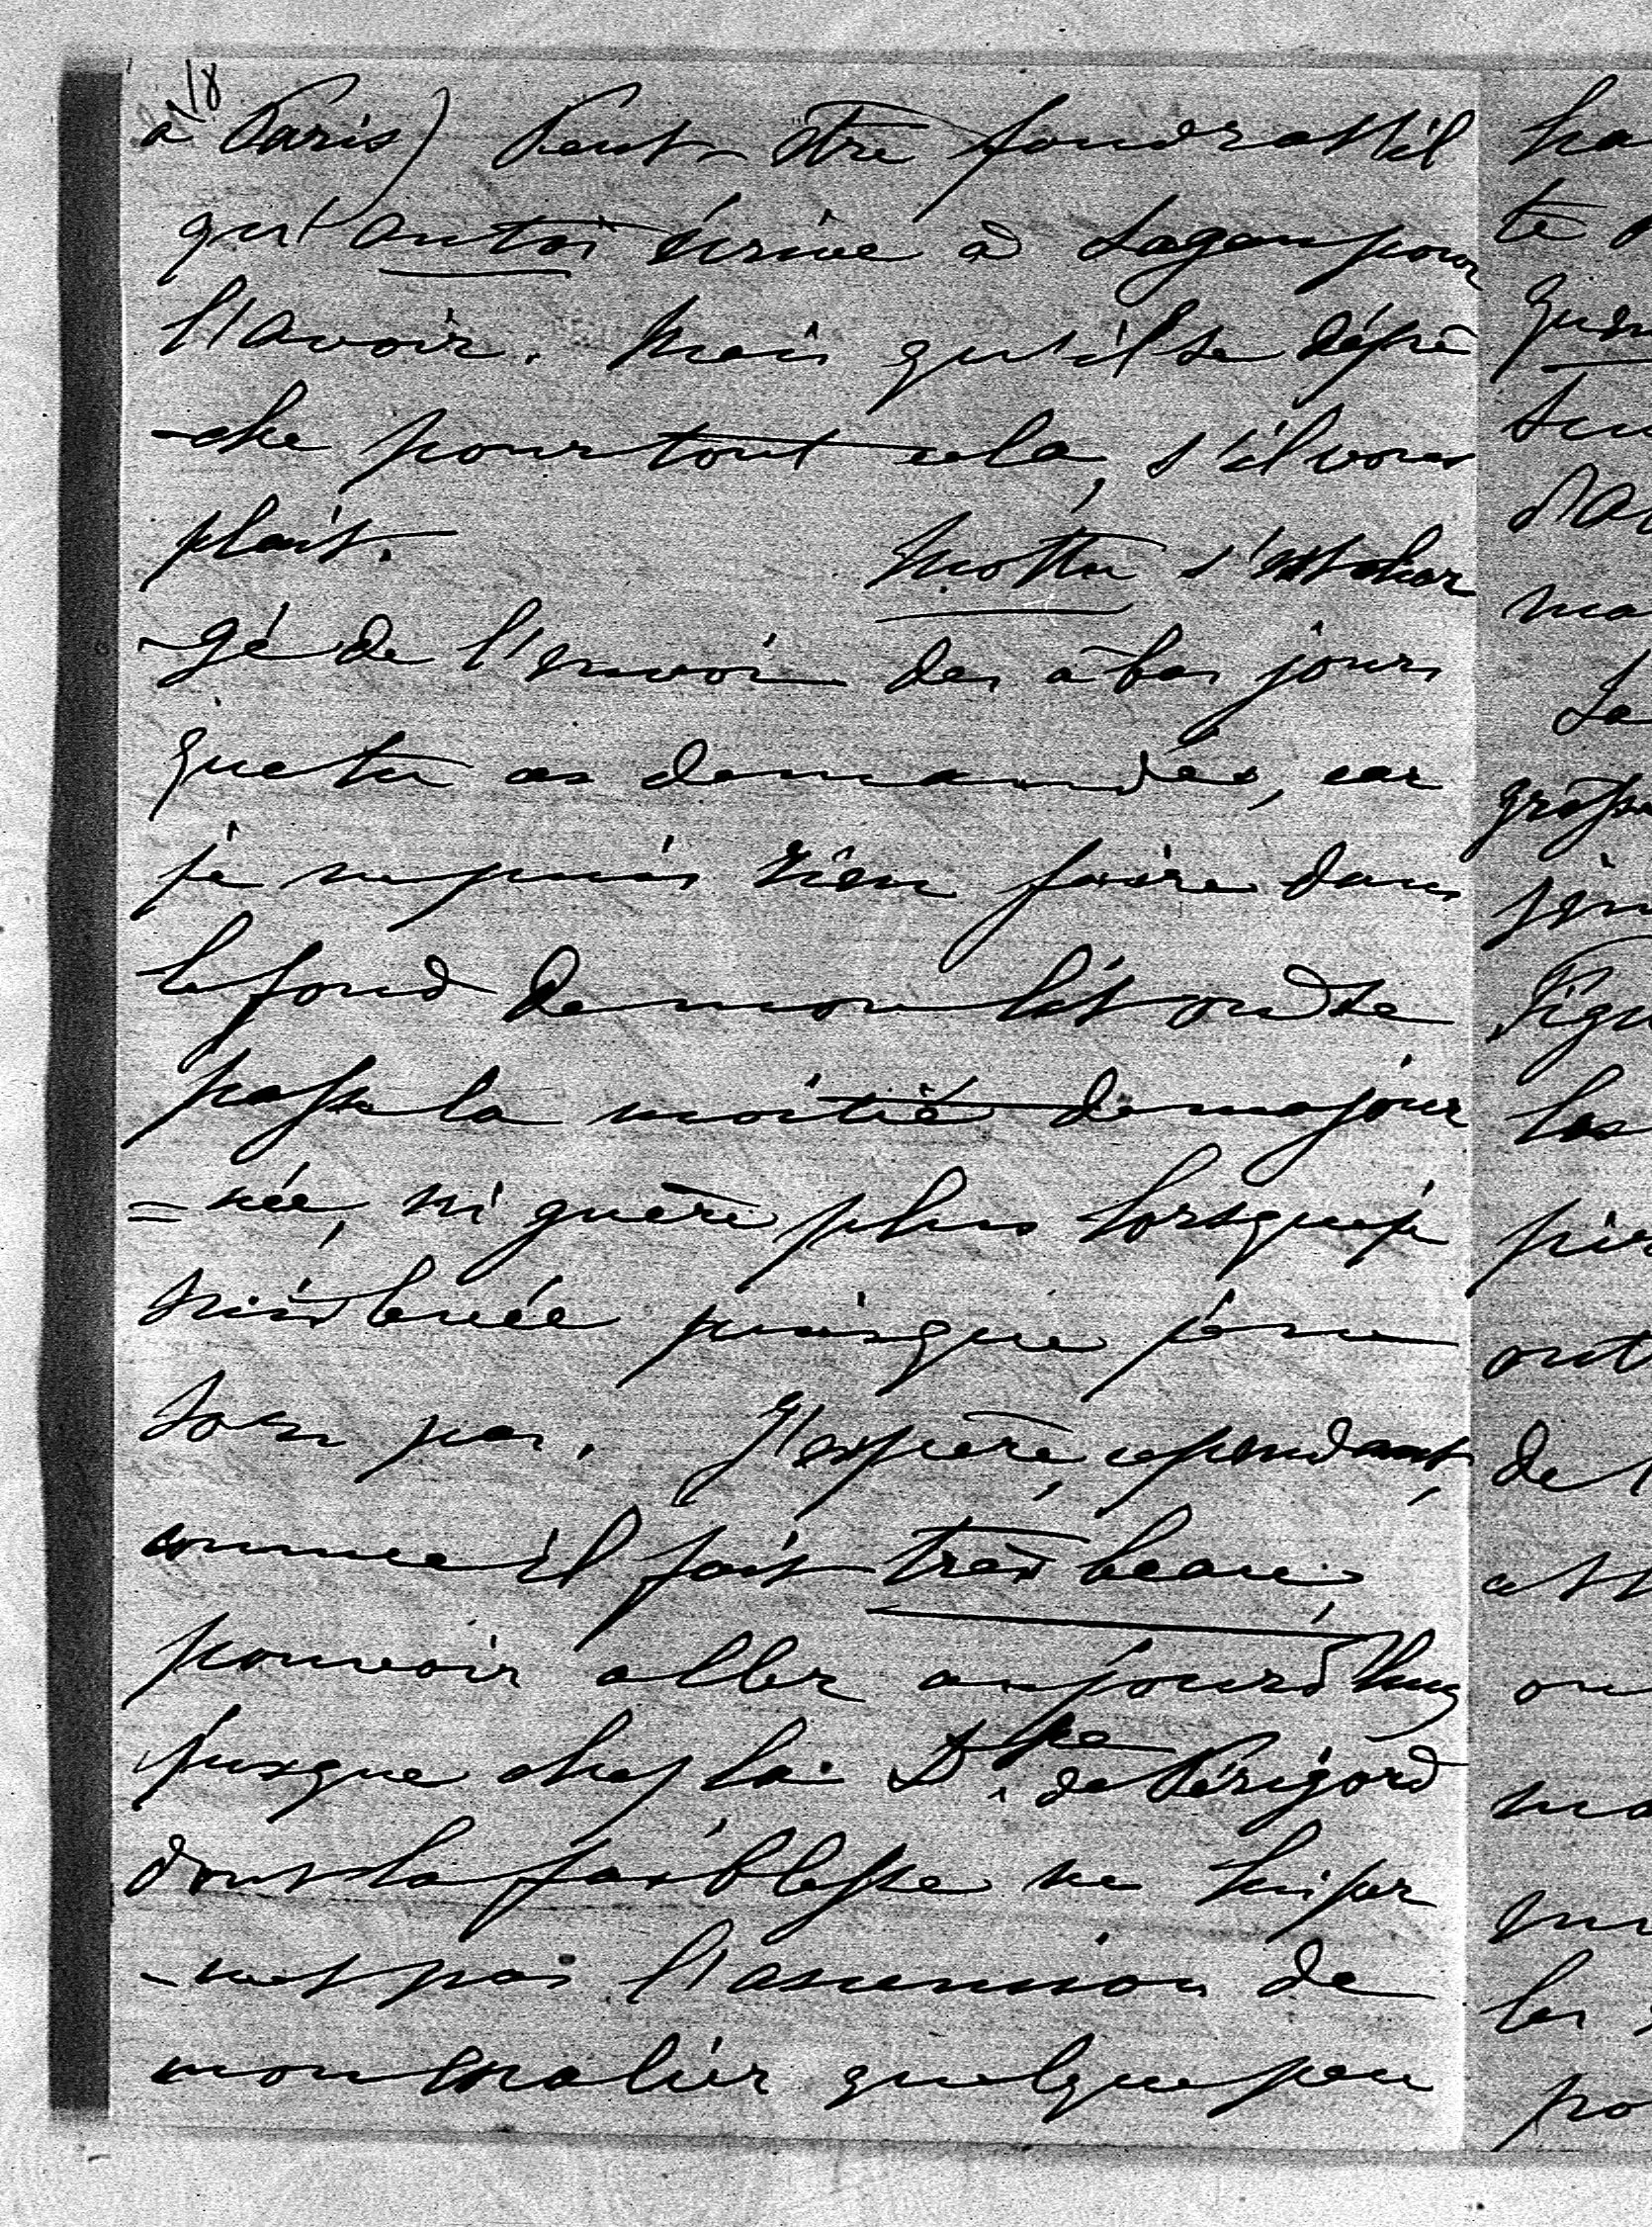 18
à Paris) Peut-être faudrat'il
qu'Antoi écrive à Sagan pour
l'avoir. Mais qu'il se dépê
-che pour tout cela, s'il vous
plait. Motta s'est char
-gé de l'envoi des à bas jours
que tu as demandés, car
je ne puis rien faire dans
le fond de mon lit où se
passe la moitié de ma jour
=née, ni guère plus lorsque je
suis levée puisque je ne
sors pas. J'espère, cependant,
comme il fait très beau
pouvoir aller aujourd'hui
jusque chez la D.sse de Périgord
dont la faiblesse ne lui per
-met pas l'ascension de
mon escalier quelque peu